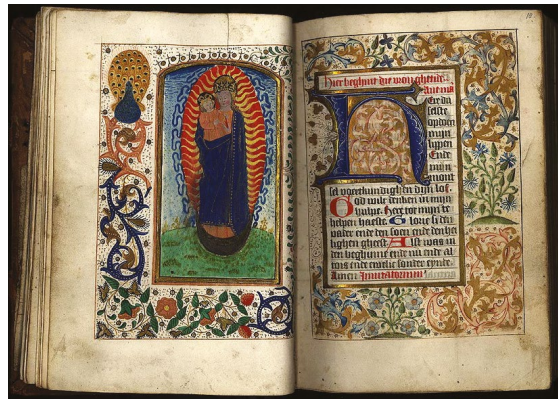 Hier beghint die won ghetide
Aue ma
Ere du
selste
opdoen
mijn
lyppen
Ende
mijn
mont
sel voertkundighen dijn lof.
God wilt denken in mijn
hulpe. Here tot mijnre
helpen haeste. Glorie si den
vader ende den soen ende den hei
lighen gheest. Alst was in
den beghinne ende nu ende al
toes ende ewelic sonder eynde.
Amen Inuitatorium